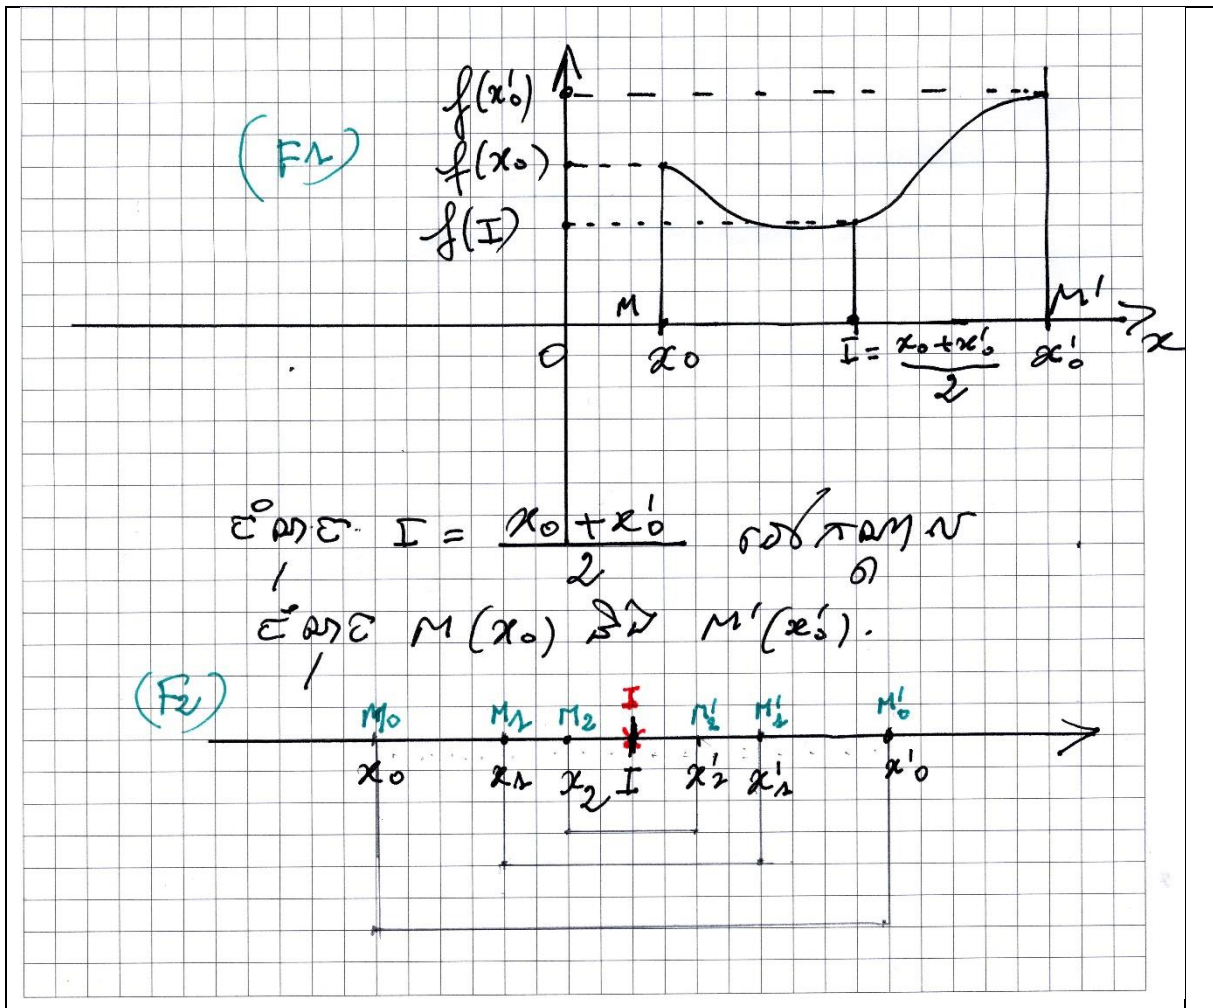 (F1)
f(x'₀)
f(x₀)
f(I)
M M'
O x₀ I = (x₀ + x'₀)/2 x'₀ x
I = (x₀ + x'₀)/2
M(x₀) និង M'(x'₀).
(F2)
M₀ M₁ M₂ I M'₂ M'₁ M'₀
x₀ x₁ x₂ I x'₂ x'₁ x'₀